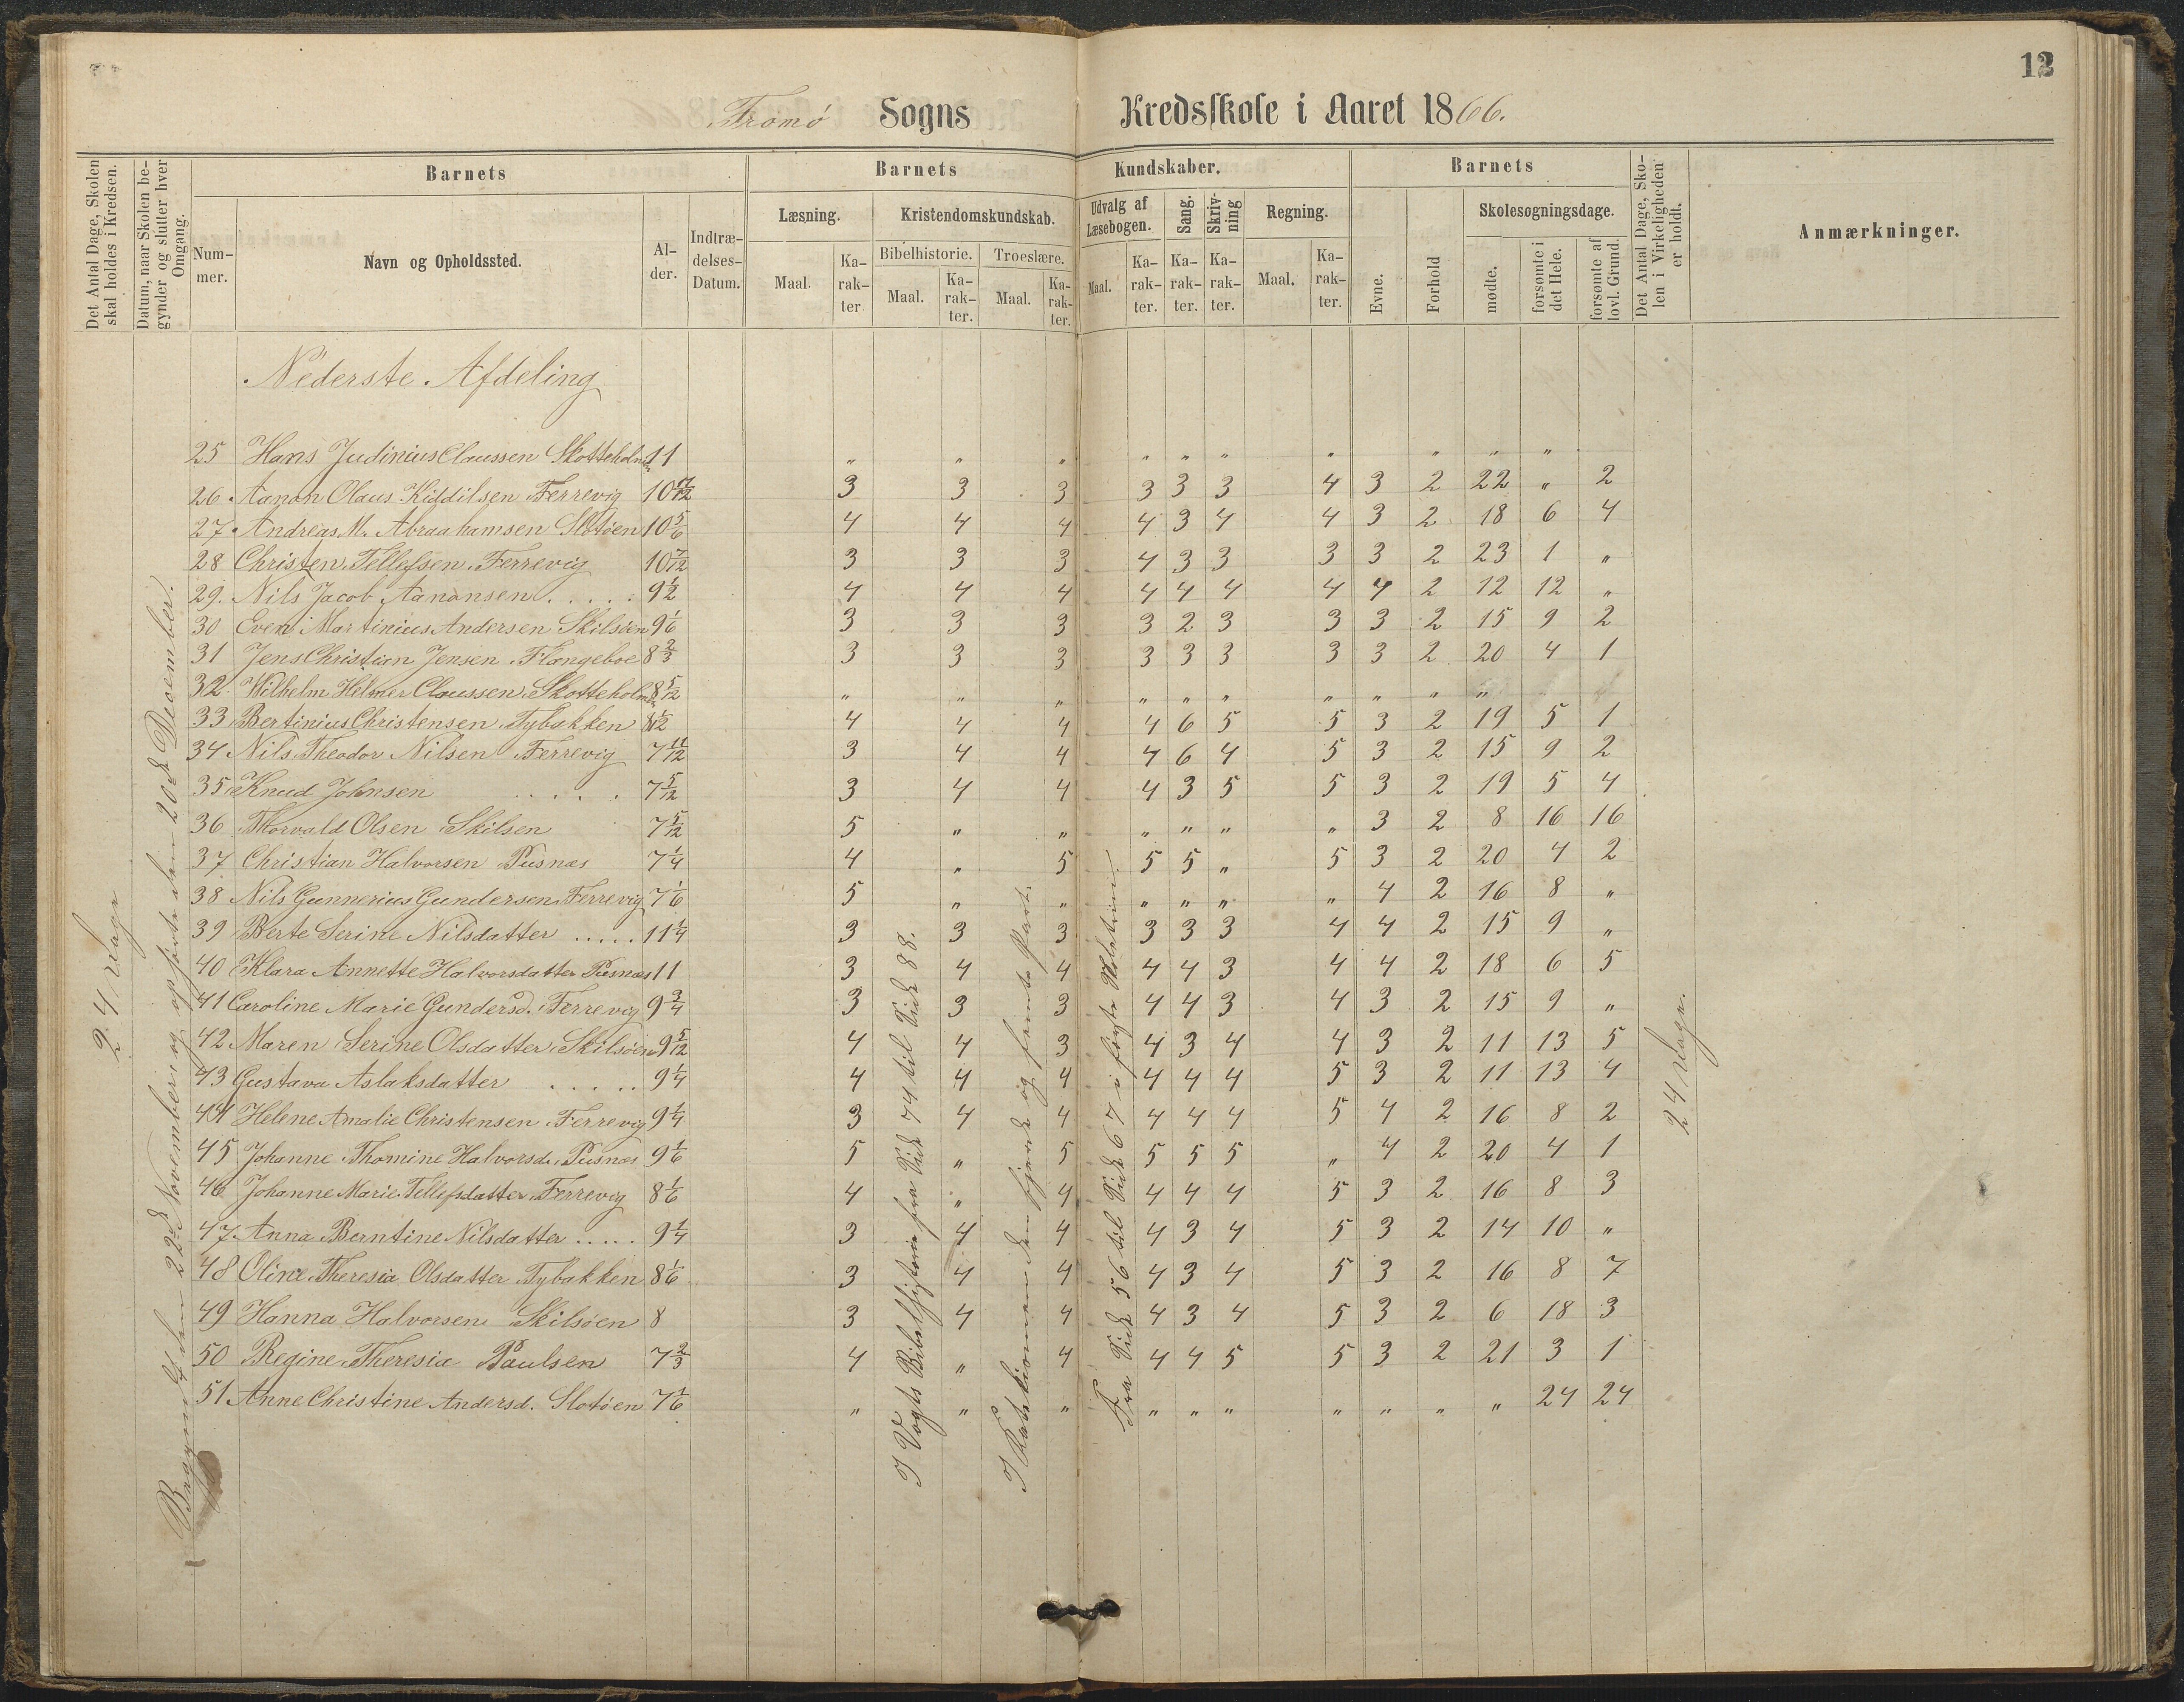 12
Tromø Sogns Kredsskole i Aaret 1866.
Det Antal Dage, Skolen skal holdes i Kredsen.
Datum, naar Skolen begynder og slutter hver Omgang.
Barnets
Nummer.
Navn og Opholdssted.
Alder.
Indtrædelses-Datum.
Barnets Kundskaber.
Læsning.
Maal.
Karakter
Kristendomskundskab.
Bibelhistorie.
Maal.
Karakter.
Troeslære.
Maal.
Karakter.
Udvalg af Læsebogen.
Maal.
Karakter.
Sang.
Karakter.
Skrivning
Karakter.
Regning.
Maal.
Karakter.
Barnets
Evne.
Forhold
Skolesøgningsdage.
mødte.
forsømte i det Hele.
forsømte af lovl. Grund.
Det Antal Dage, Skolen i Virkeligheden er holdt.
Anmærkninger.
Nederste Afdeling
25 Hans Judinius Claussen Skotteholmen 11 " " " " " " " " " "
26 Aanon Olaus Kiddilsen Færrevig 10 7/12 3 3 3 3 3 3 4 3 2 22 " 2
27 Andreas M. Abraahamsen Slotøen 10 5/6 4 4 4 4 3 4 4 3 2 18 6 4
28 Christen Tellefsen Færrevig 10 7/12 3 3 3 4 3 3 3 3 2 23 1 "
29. Nils Jacob Aanonsen ..... 9 1/2 4 4 4 4 4 4 4 4 2 12 12 "
30 Even Martinius Andersen Skilsøen 9 1/6 3 3 3 3 2 3 3 3 2 15 9 2
31 Jens Christian Jensen Flangeboe 8 2/3 3 3 3 3 3 3 3 3 2 20 4 1
32. Wilhelm Helmer Claussen Skotteholmen 8 5/12 " " " " " " " " " "
33 Bertinius Christensen Tybakken 8 1/12 4 4 4 4 6 5 5 3 2 19 5 1
34 Nils Theodor Nilsen Færrevig 7 11/12 3 4 4 4 6 4 5 3 2 15 9 2
35 Knud Johnsen ..... 7 5/12 3 4 4 4 3 5 5 3 2 19 5 4
36 Thorvald Olsen Skilsen 7 5/12 5 " " " " " " 3 2 8 16 16
37 Christian Halvorsen Pusnæs 7 1/4 4 " 5 5 5 " 5 3 2 20 4 2
38 Nils Gunnerius Gundersen Færrevig 7 1/6 5 " " " " " " 4 2 16 8 "
39 Berte Serine Nilsdatter ..... 11 1/4 3 3 3 3 3 3 4 4 2 15 9 "
40 Klara Annette Halvorsdatter Pusnæs 11 3 4 4 4 4 3 4 4 2 18 6 5
41 Caroline Marie Gundersd. Færrevig 9 3/4 3 3 3 4 4 3 4 3 2 15 9 "
42 Maren Serine Olsdatter Skilsøen 9 5/12 4 4 3 4 3 4 4 3 2 11 13 5
43 Gustava Aslaksdatter ..... 9 1/4 4 4 4 4 4 4 5 3 2 11 13 4
44 Helene Amalie Christensen Færrevig 9 1/4 3 4 4 4 4 4 5 4 2 16 8 2
45 Johanne Thomine Halvorsd. Pusnæs 9 1/6 5 " 5 5 5 5 " 4 2 20 4 1
46 Johanne Marie Tellefsdatter Færrevig 8 1/6 4 " 4 4 4 4 5 3 2 16 8 3
47 Anna Berntine Nilsdatter ..... 9 1/4 3 4 4 4 3 4 5 3 2 14 10 "
48 Oline Theresia Olsdatter Tybakken 8 1/6 3 4 4 4 3 4 5 3 2 16 8 7
49 Hanna Halvorsen Skilsøen 8 3 4 4 4 3 4 5 3 2 6 18 3
50 Regine Theresia Paulsen 7 2/3 4 " 4 4 4 5 5 3 2 21 3 1
51 Anne Christine Andersd. Slotøen 7 1/6 " " " " " " " " " " 24 24
24 Dage
Begyndt den 22de November og ophørte den 20de December.
I Vogts Bibelhistorie fra Side 74 til Side 88.
I Katekismen den fjerde og femte Part.
Fra Side 56 til Side 67 i første Skoletrin.
24 Dage.